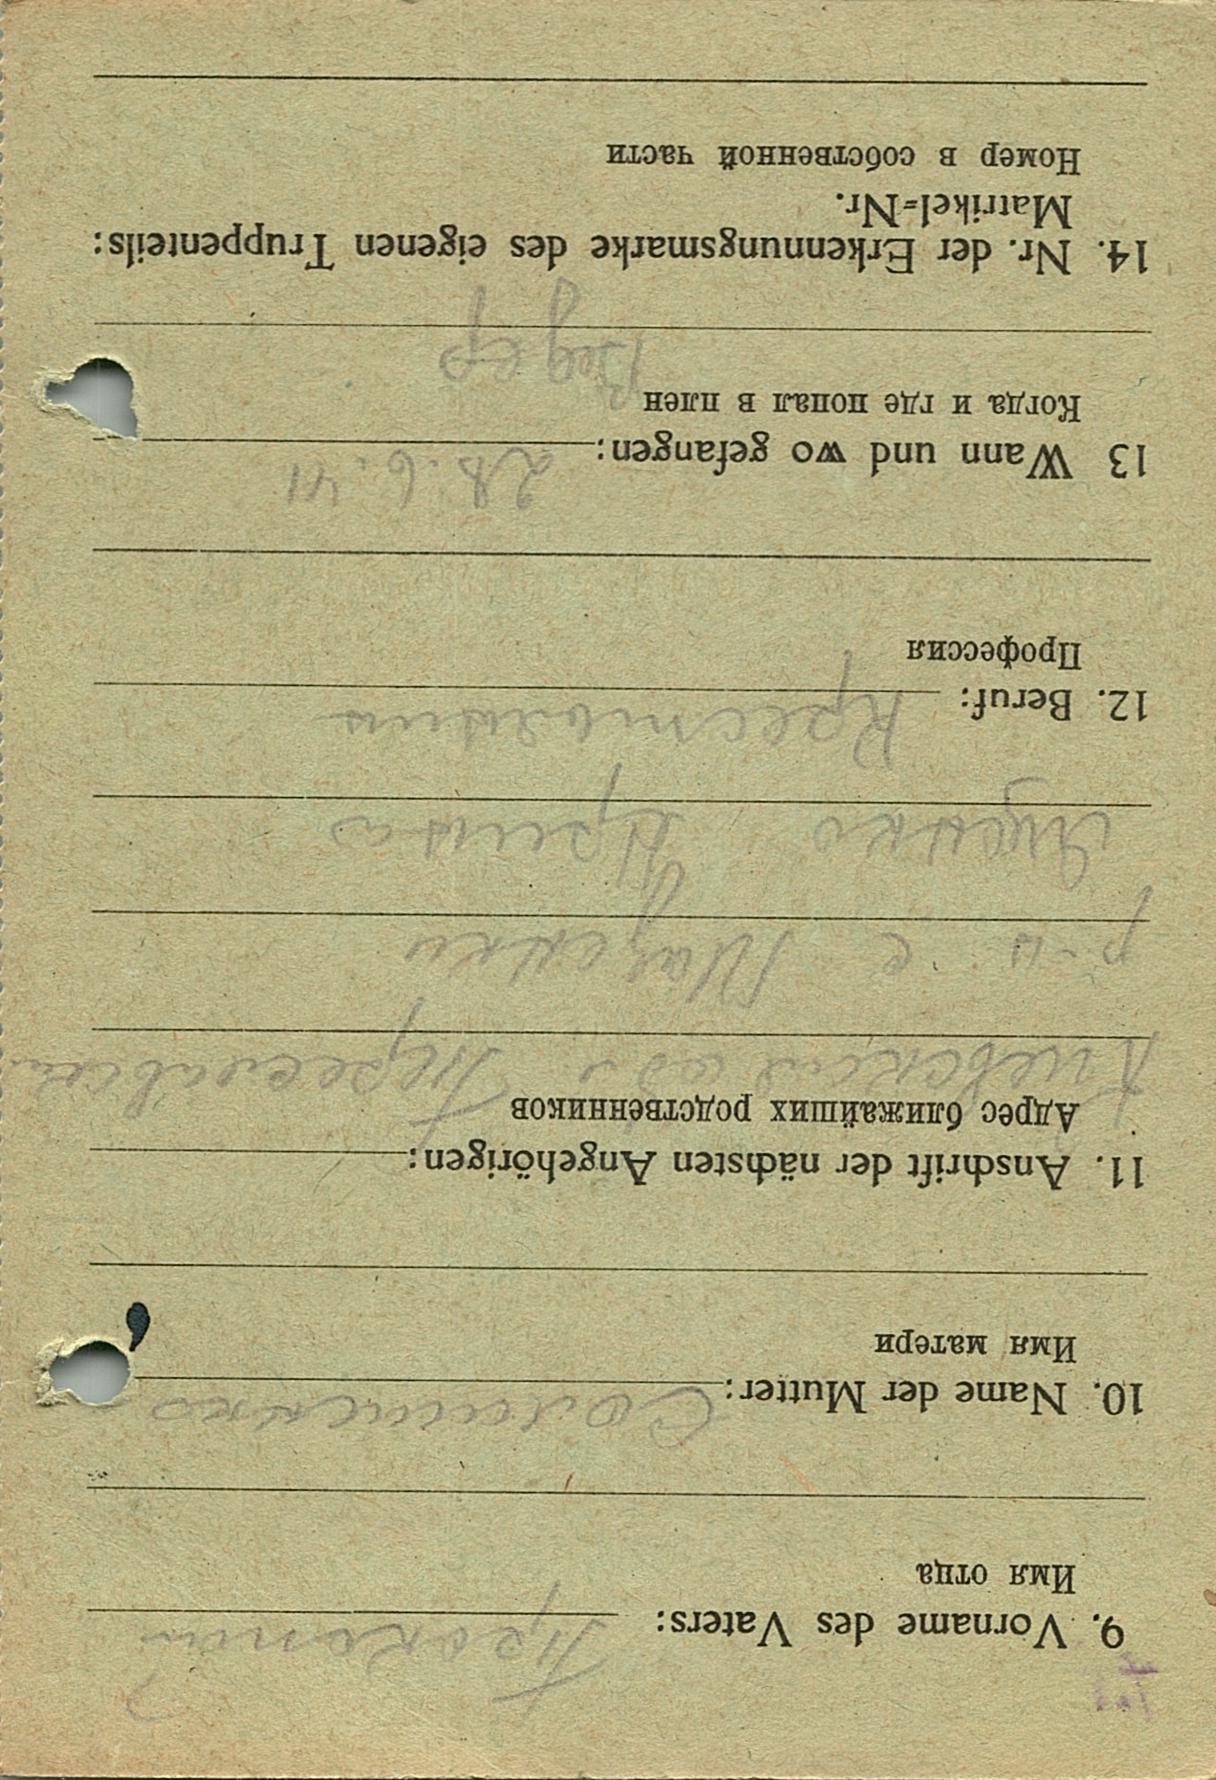 9. Vorname des Vaters: Прокопий
Имя отца
10. Name der Mutter:
Имя матери
11. Anschrift der nächsten Angehörigen:
Адрес ближайших родственников
Киевский обл Переславский
р-н с
Яценко Ирина
12. Beruf:
Профессия
13 Wann und wo gefangen: 28.6.41
Когда и где попал в плен
14. Nr. der Erkennungsmarke des eigenen Truppenteils:
Matrikel-Nr.
Номер в собственной части